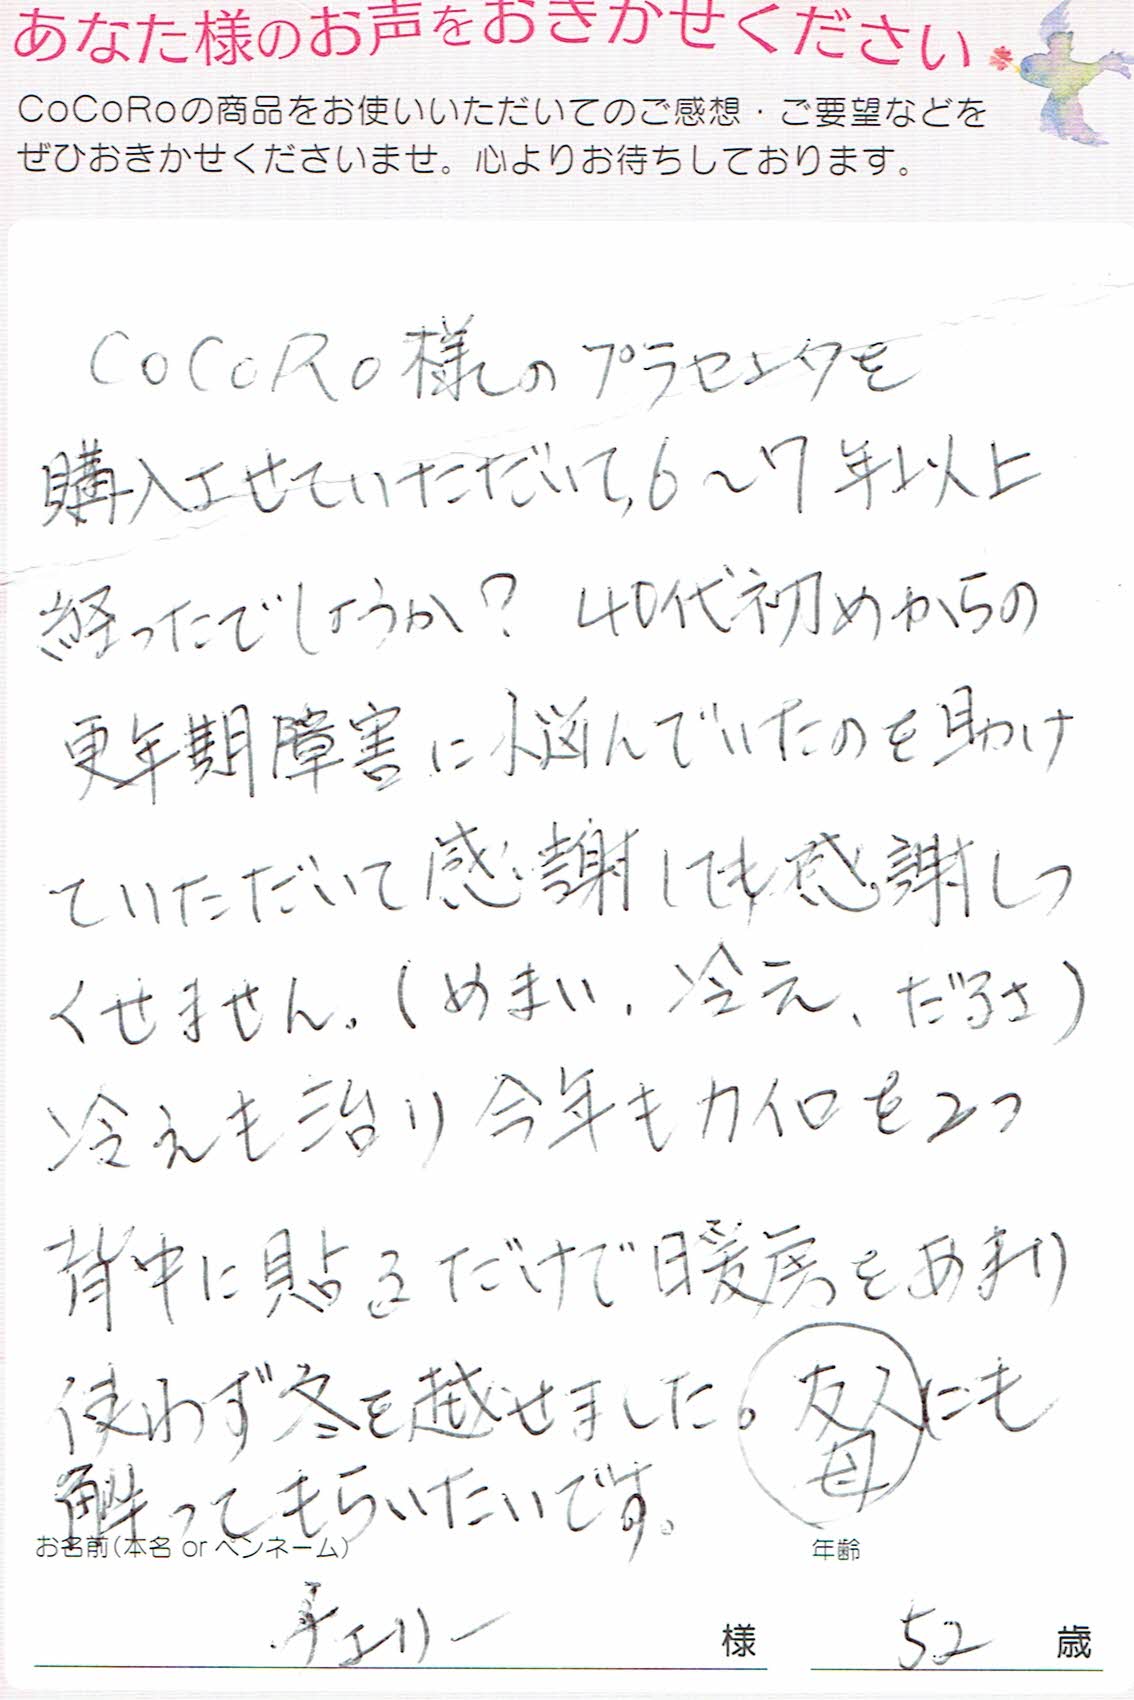 あなた様のお声をおきかせください
CoCoRoの商品をお使いいただいてのご感想・ご要望などを
ぜひおきかせくださいませ。心よりお待ちしております。
CoCoRo様のプラセンタを
購入させていただいて、6〜7年以上
経ったでしょうか？ 40代初めからの
更年期障害に悩んでいたのを助け
ていただいて感謝しても感謝しつ
くせません。(めまい、冷え、だるさ)
冷えも治り今年もカイロを2つ
背中に貼るだけで暖房をあまり
使わず冬を越せました。友人にも
母
解ってもらいたいです。
お名前(本名 or ペンネーム)
年齢
チェリー 様
52 歳